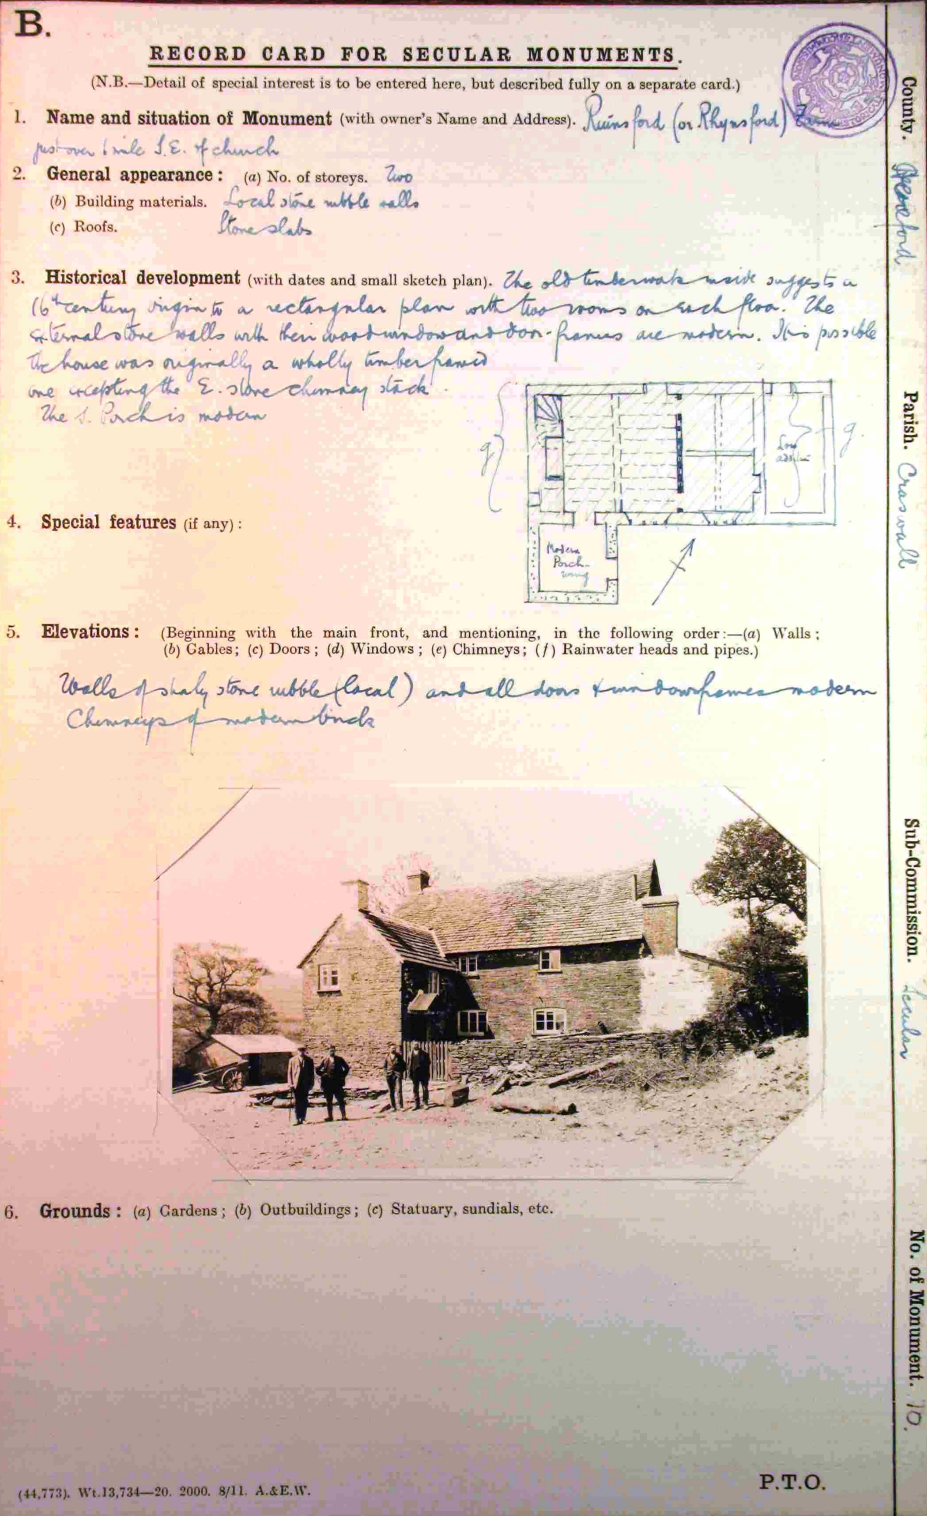 B.
RECORD CARD FOR SECULAR MONUMENTS.
(N.B.—Detail of special interest is to be entered here, but described fully on a separate card.)
1. Name and situation of Monument (with owner's Name and Address). Ruinsford (or Rhynsford)
just over 1 mile S.E. of church
2. General appearance: (a) No. of storeys. Two
(b) Building materials. Local stone rubble walls
(c) Roofs. Stone slabs
3. Historical development (with dates and small sketch plan). The old timberwork inside suggests a
16th century origin to a rectangular plan with two rooms on each floor. The
external stone walls with their wood window and door-frames are modern. It is possible
the house was originally a wholly timber framed
one excepting the E. stone chimney stack.
The S. Porch is modern
g
Low
g.
Modern
Porch-
wing
4. Special features (if any):
5. Elevations: (Beginning with the main front, and mentioning, in the following order:—(a) Walls;
(b) Gables; (c) Doors; (d) Windows; (e) Chimneys; (f) Rainwater heads and pipes.)
Walls of shaly stone rubble (local) and all doors & window frames modern
Chimneys of modern brick
6. Grounds: (a) Gardens; (b) Outbuildings; (c) Statuary, sundials, etc.
(44,773). Wt.13,734—20. 2000. 8/11. A.&E.W.
P.T.O.
County. Hereford
Parish. Craswall
Sub-Commission. Secular
No. of Monument. 10.